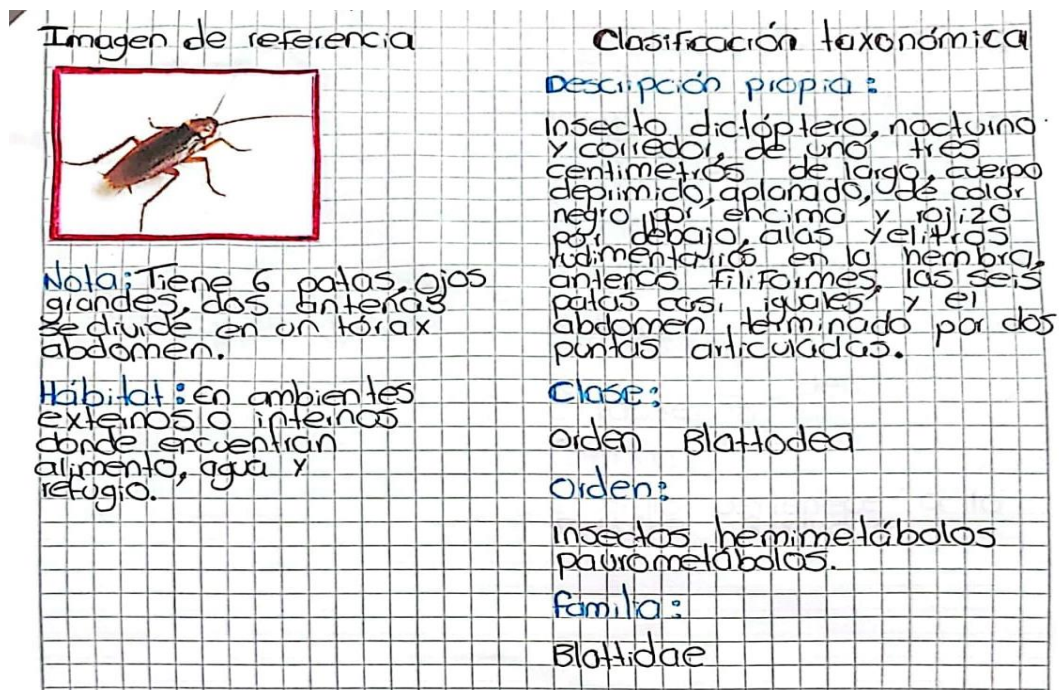 Imagen de referencia
Nota: Tiene 6 patas, ojos
grandes, dos antenas
se divide en un tórax
abdomen.
Hábitat: En ambientes
externos o internos
donde encuentran
alimento, agua y
refugio.
Clasificación taxonómica
Descripción propia:
Insecto dictóptero, nocturno
y corredor, de uno tres
centímetros de largo, cuerpo
deprimido, aplanado, de color
negro por encima y rojizo
por debajo, alas y elitros
rudimentarios en la hembra,
antenas filiformes, las seis
patas casi iguales y el
abdomen terminado por dos
puntas articuladas.
Clase:
Orden Blattodea
Orden:
Insectos hemimetábolos
paurometábolos.
Familia:
Blattidae